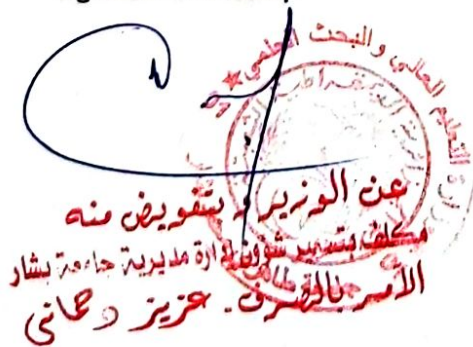 التعليم العالي والبحث العلمي
عن الوزير و بتفويض منه
مكلف بتسيير شؤون إدارة مديرية جامعة بشار
الآمر بالصرف. عزيز رحماني